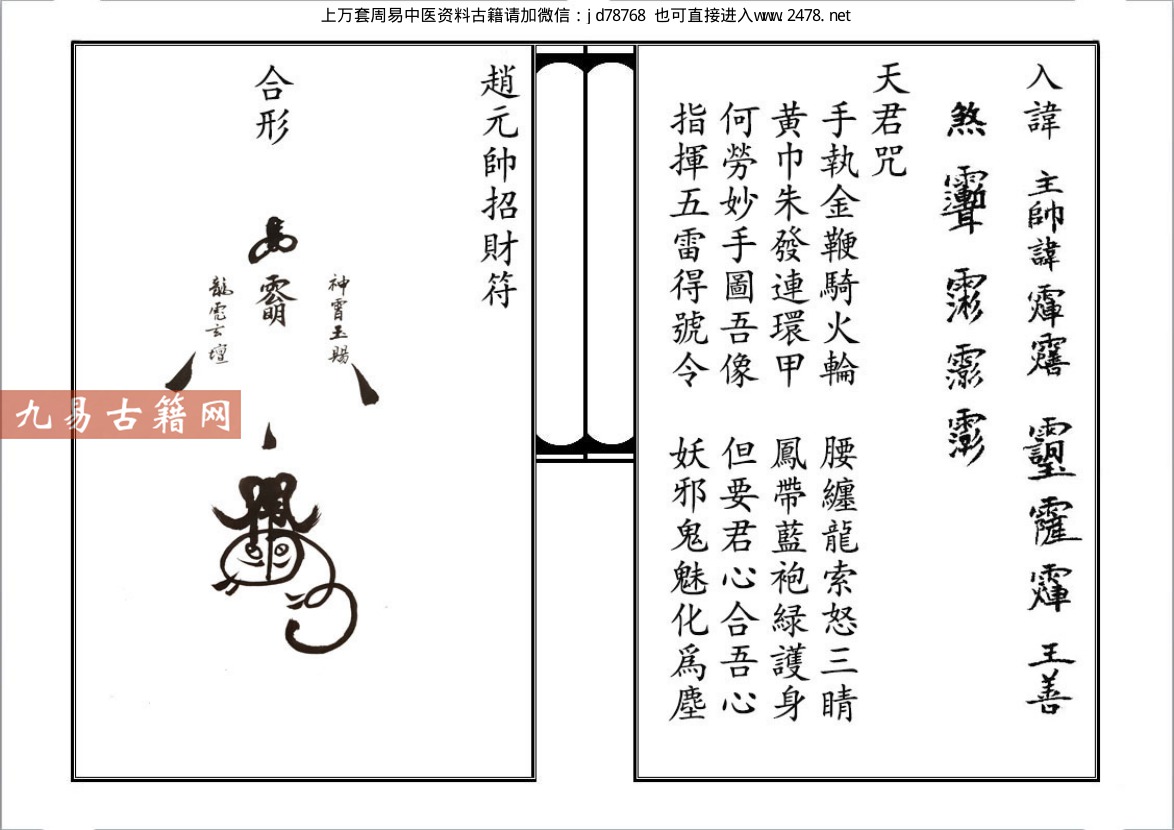 上万套周易中医资料古籍请加微信：jd78768 也可直接进入www.2478.net
入諱 主帥諱 王善
煞
天君咒
手執金鞭騎火輪 腰纏龍索怒三睛
黃巾朱發連環甲 鳳帶藍袍緑護身
何勞妙手圖吾像 但要君心合吾心
指揮五雷得號令 妖邪鬼魅化爲塵
趙元帥招財符
合形
神霄玉賜
龍虎玄壇
九易古籍网